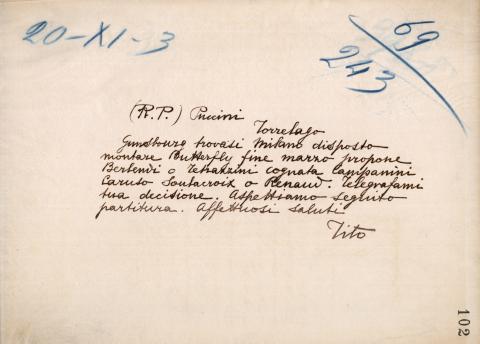 20-XI-3
69
243
(R. P.) Puccini
Torrelago
Gunsbourg trovasi Milano disposto
montare Butterfly fine marzo propone
Berlendi o Tetrazzini cognata Campanini
Caruso Soulacroix o Renaud. Telegrafami
tua decisione. Aspettiamo seguito
partitura. Affettuosi saluti
Tito
102